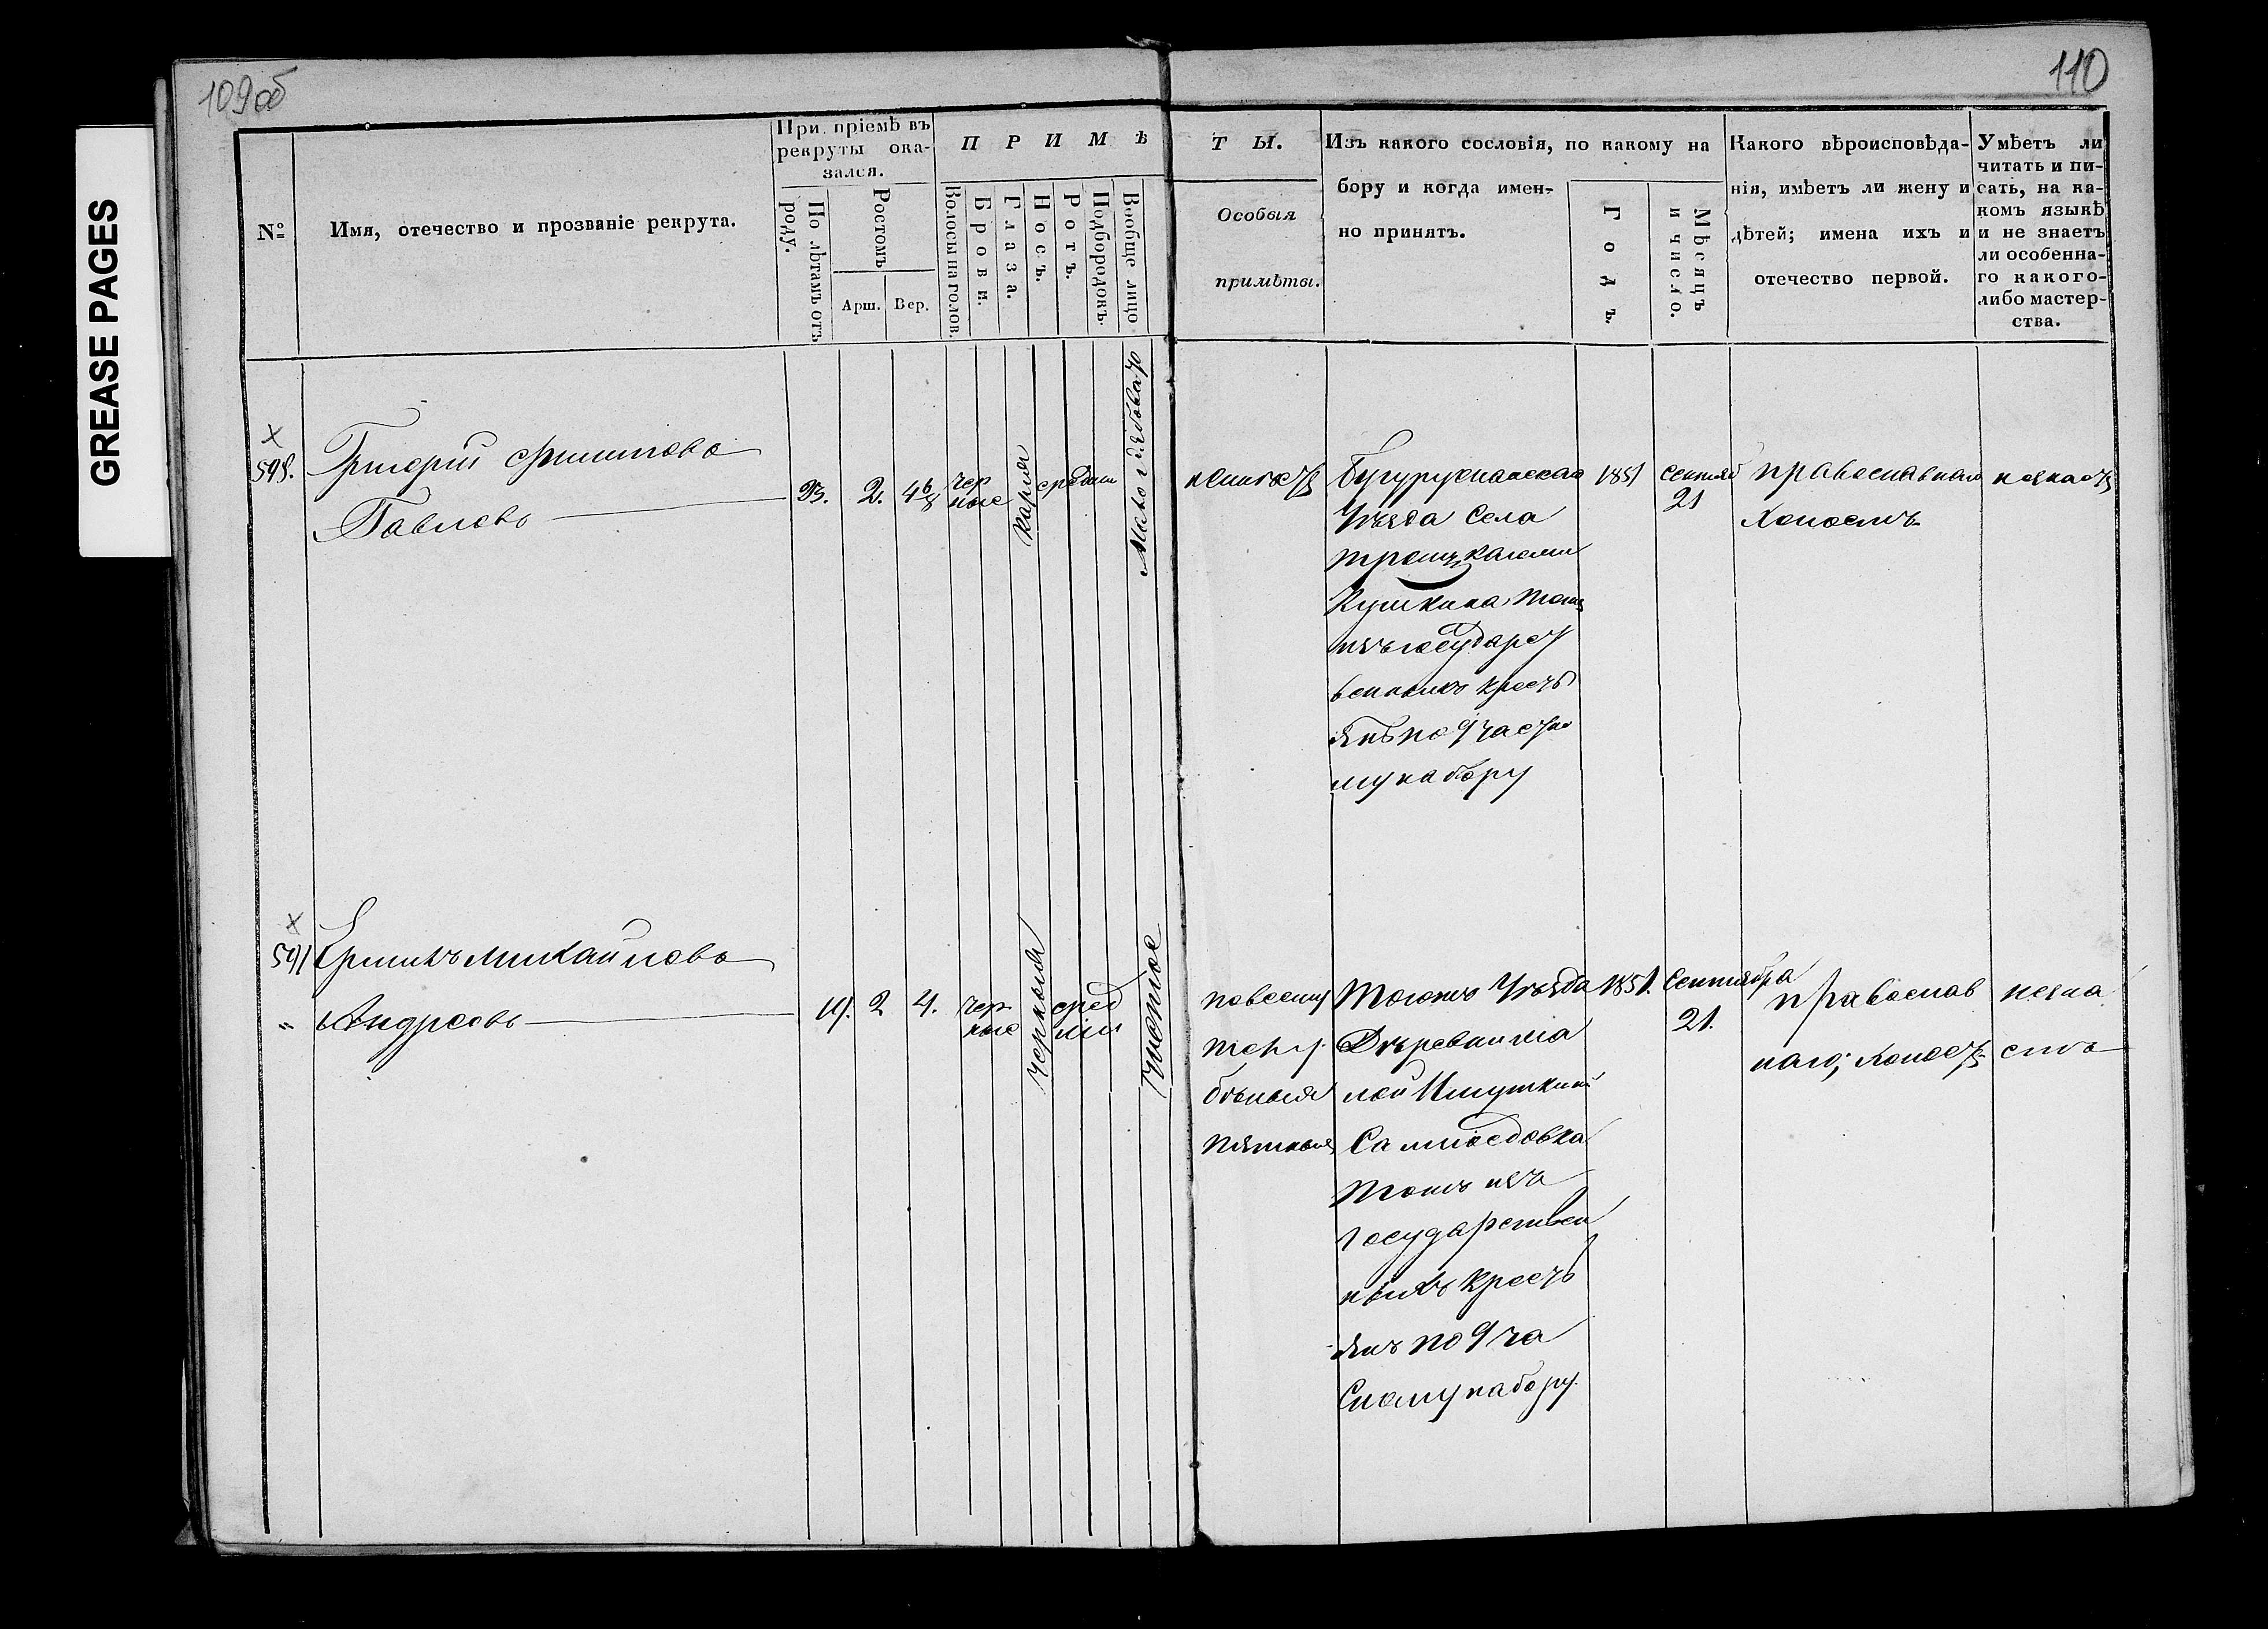 GREASE PAGES
109об
110
№
Имя, отечество и прозваніе рекрута.
При пріемѣ въ
рекруты ока-
зался.
По лѣтамъ отъ
роду.
Ростомъ
Арш.
Вер.
ПРИМѢ
Волосы на голов.
Брови.
Глаза.
Носъ.
Ротъ.
Подбородокъ.
Вообще лицо
ТЫ.
Особыя
примѣты.
Изъ какого сословія, по какому на
бору и когда имен-
но принятъ.
Годъ.
Мѣсяцъ
и число.
Какого вѣроисповѣда-
нія, имѣетъ ли жену и
дѣтей; имена ихъ и
отечество первой.
Умѣетъ ли
читать и пи-
сать, на ка-
комъ языкѣ
и не знаетъ
ли особенна-
го какого-
либо мастер-
ства.
Григорій Филиповъ
Павловъ
23.
2.
4 6/8
чер
ные
карія
средніи
Бугурусланскаго
Уѣзда Села
Троицкаго
тожъ
изъ государст
венныхъ кресть
янъ по 9 частно
му набору
1851
Сентяб
21
православнаго
холостъ
незнаетъ
591
Михайловъ
Андреевъ
19.
2
4.
чер
ные
черныя
сред
ніи
чистое
повсему
телу
бѣлыя
пятныя
Тогожъ Уѣзда
Деревни ма
лой Ишуткиной
тожъ изъ
государствен
ныхъ кресть
янъ по 9 ча
сному набору.
1851.
Сентября
21.
православ
наго, холостъ
незна
етъ